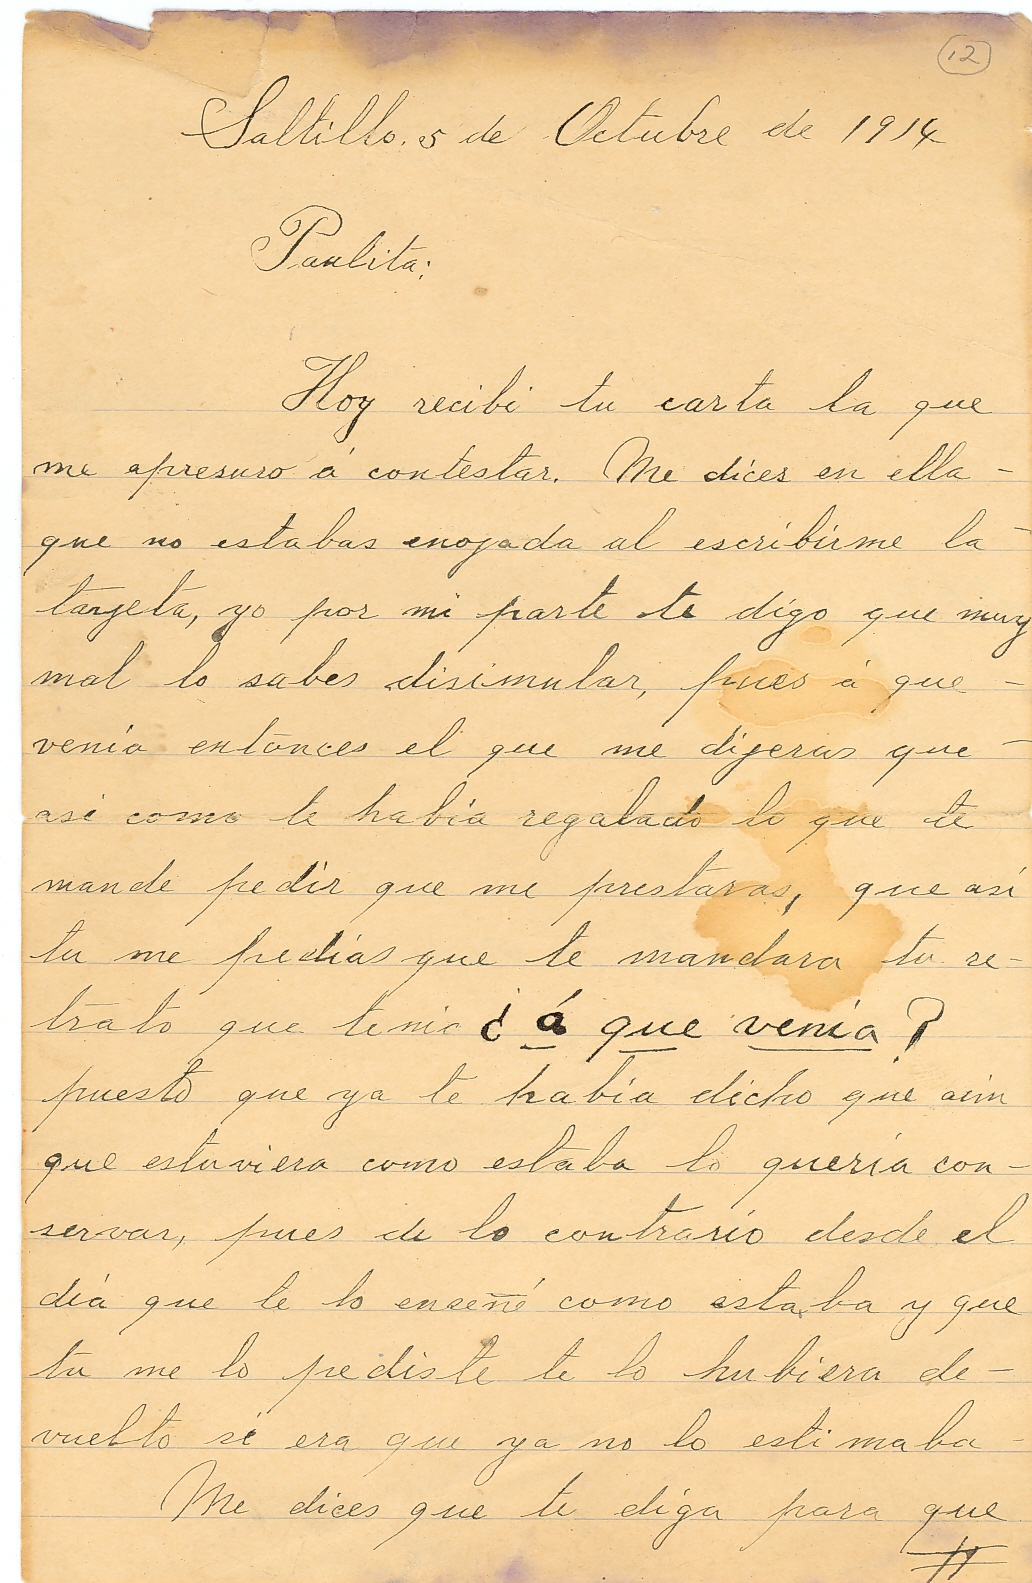 12
Saltillo. 5 de Octubre de 1914
Paulita:
Hoy recibi tu carta la que
me apresuro á contestar. Me dices en ella -
que no estabas enojada al escribirme la -
tarjeta, yo por mi parte te digo que muy
mal lo sabes disimular, pues á que -
venia entonces el que me dijeras que -
asi como te habia regalado lo que te
mande pedir que me prestaras, que asi
tu me pedias que te mandara tu re-
trato que tenia ¿á que venia?
puesto que ya te habia dicho que aun
que estuviera como estaba lo queria con-
servar, pues de lo contrario desde el
dia que te lo enseñé como estaba y que
tu me lo pediste te lo hubiera de-
vuelto si era que ya no lo estimaba -
Me dices que te diga para que